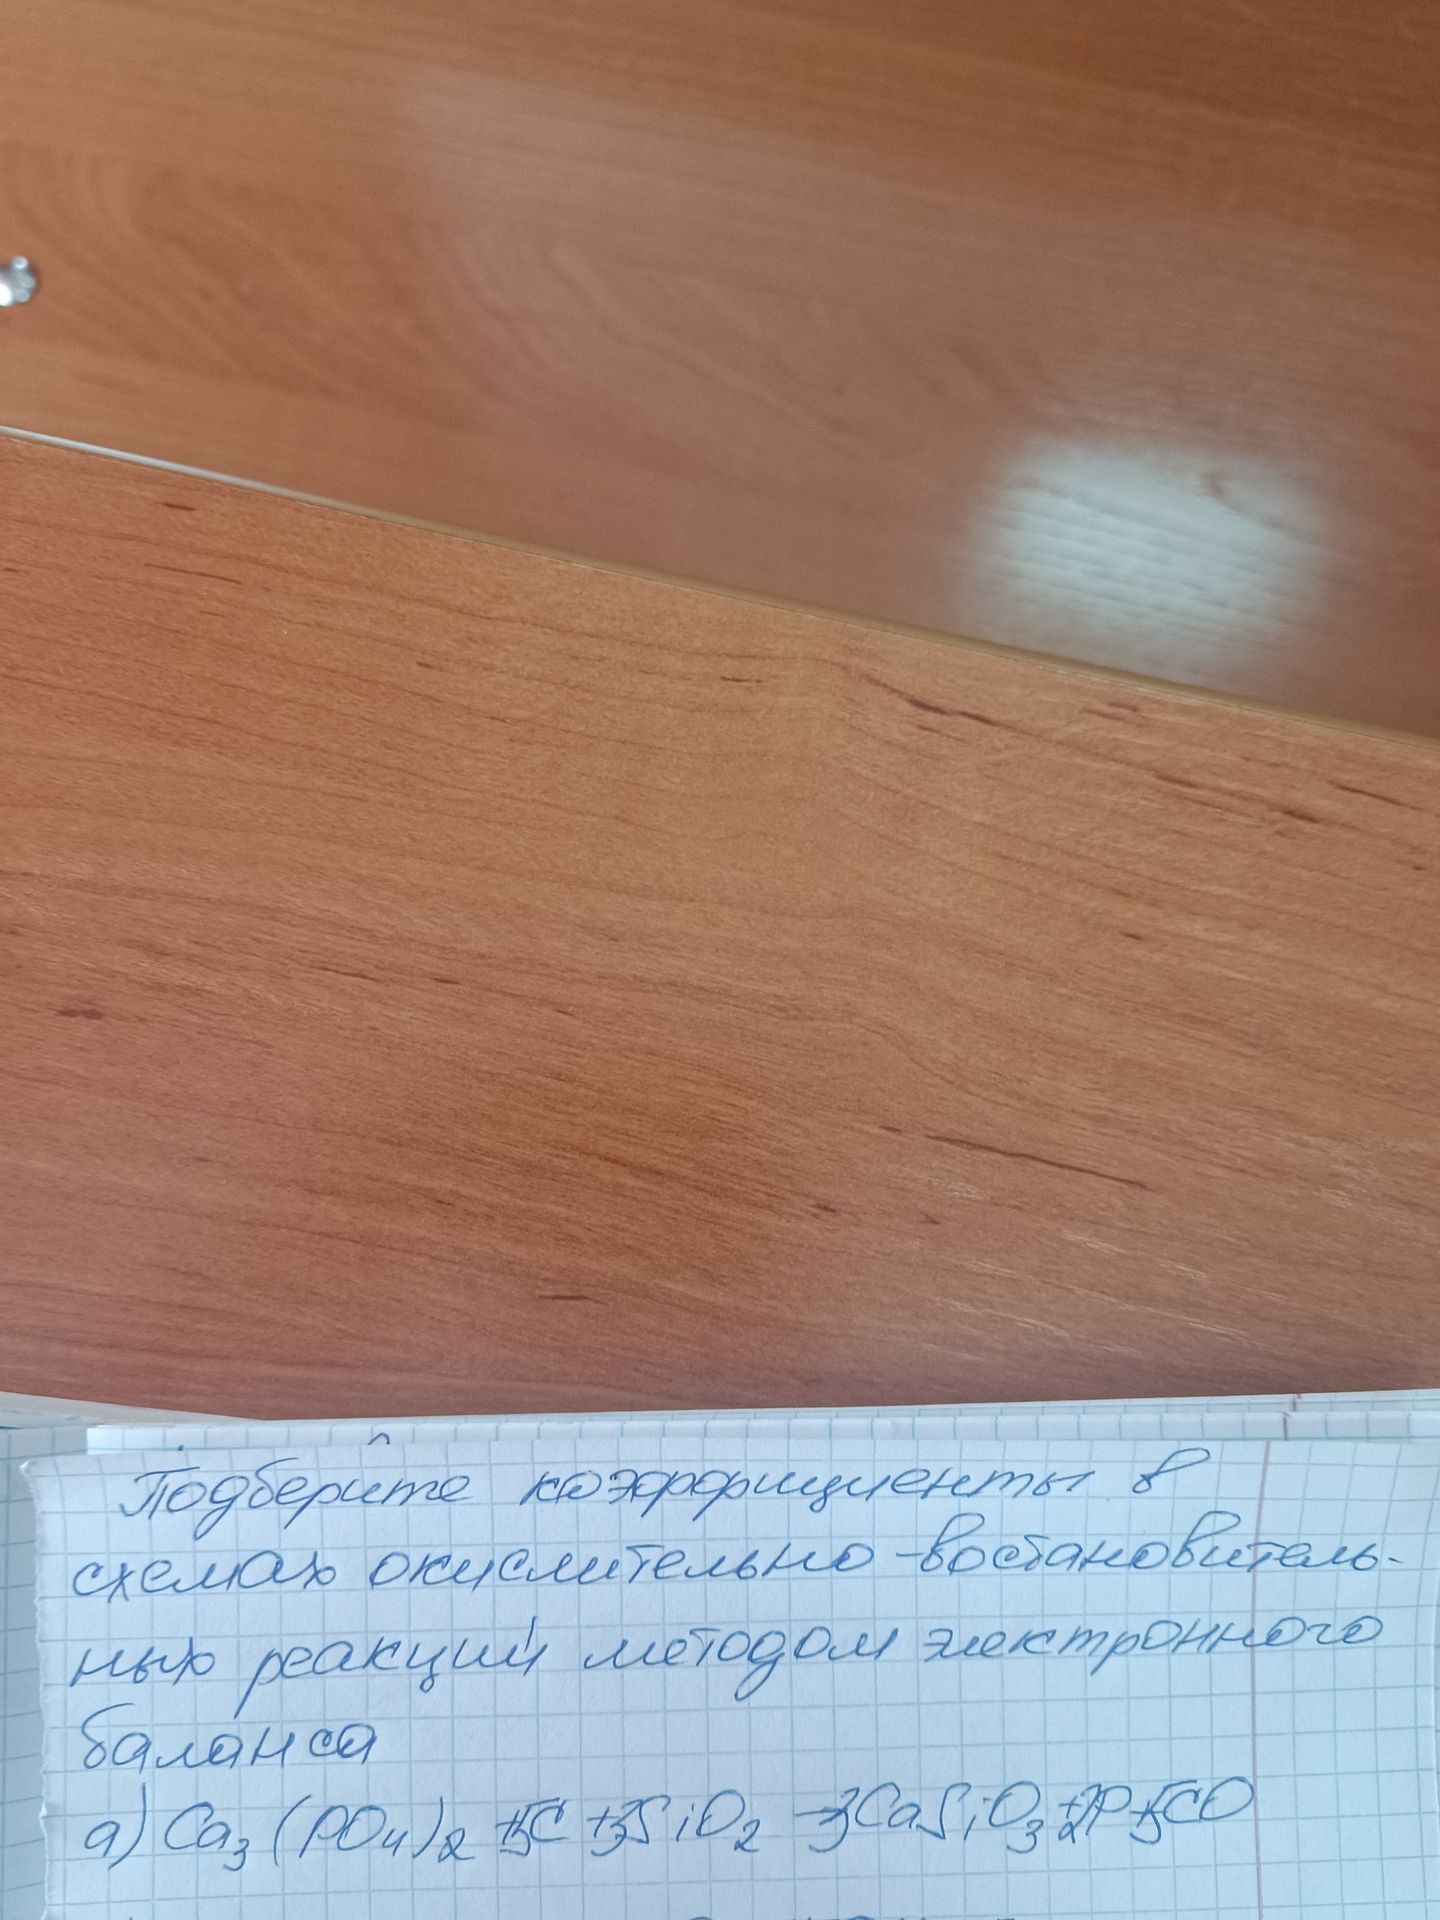 Подберите коэффициенты в
схемах окислительно-востановитель-
ных реакций методом электронного
баланса
а) Ca₃(PO₄)₂ + 5C + 3SiO₂ → 3CaSiO₃ + 2P + 5CO